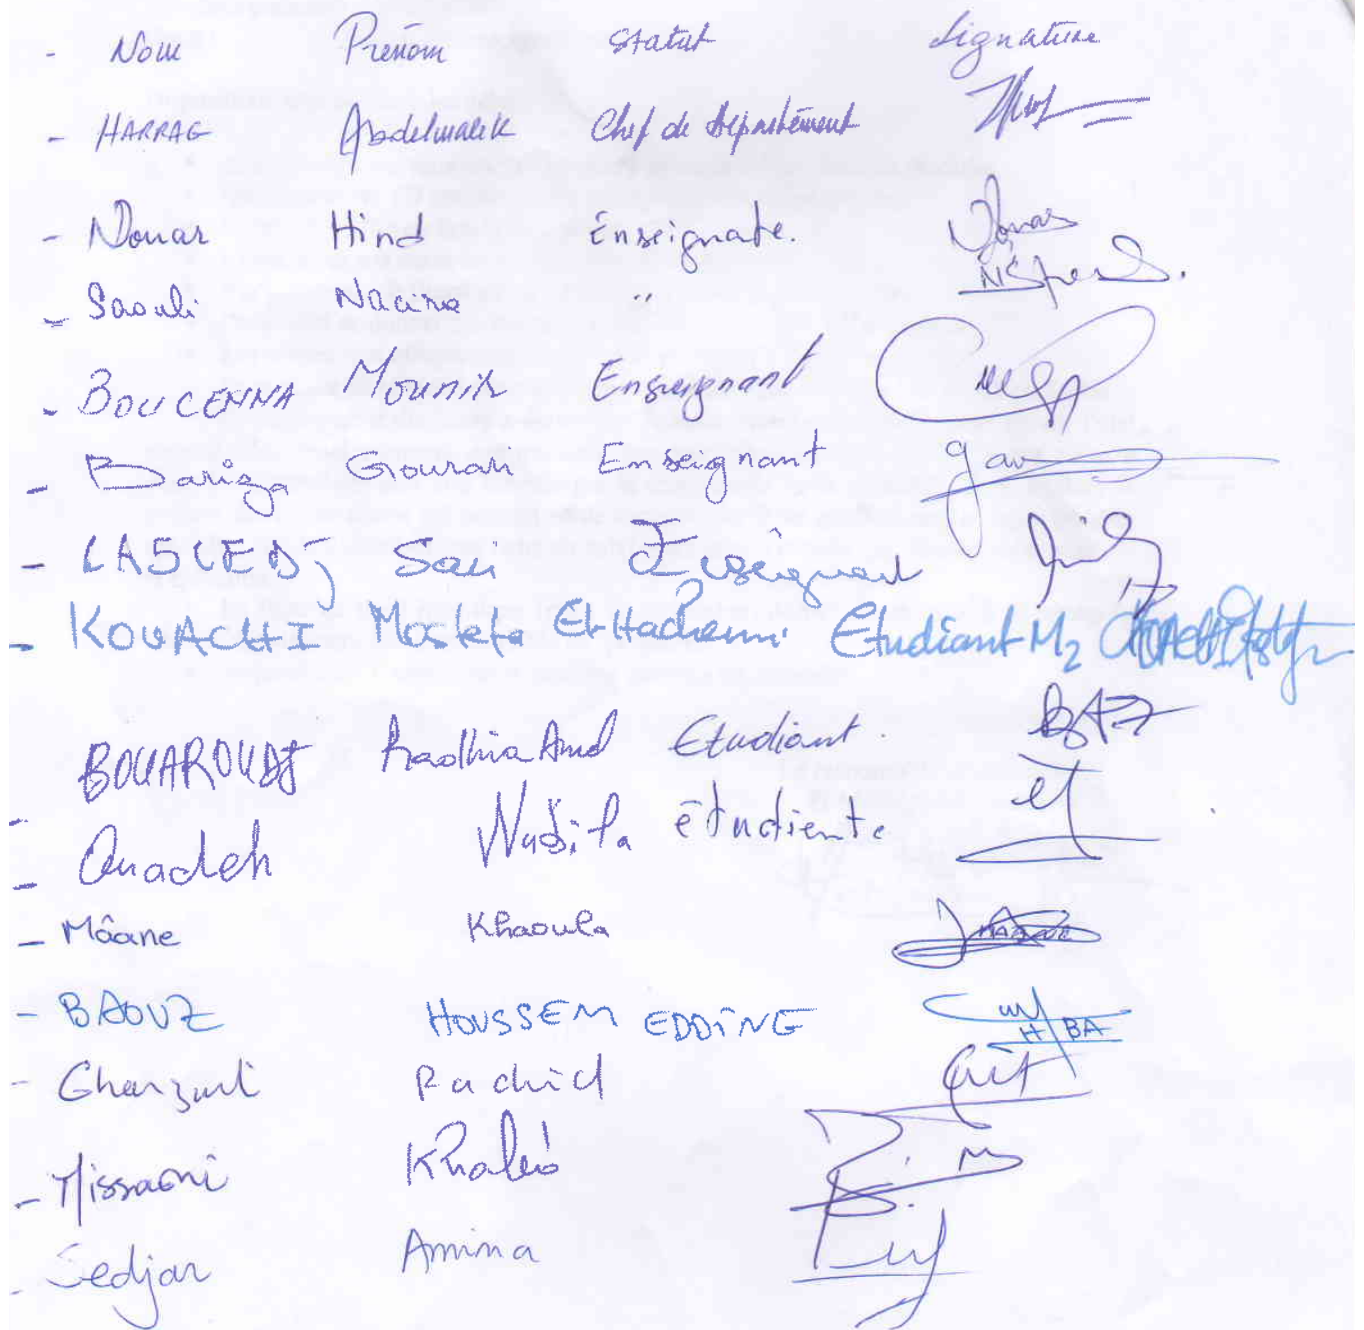 - Nom Prénom Statut Signature
- HARRAG Abdelmalek Chef de département
- Douar Hind Enseignate. Douar
- Saouli Nacira "
- BOUCENNA Mounir Enseignant
- Bariza Gourari Enseignant
- LASLEDJ Sari Enseignant
- KOUACHI Mostefa El-Hachemi Etudiant M2
BOUAROUDJ Radhia Etudiant.
- Ouadeh Wassila étudiente
- Mâane Khaoula
- BAOUZ HOUSSEM EDDINE H/BA
- Rachid
- Missaoui Khaled
- Sedjar Amina